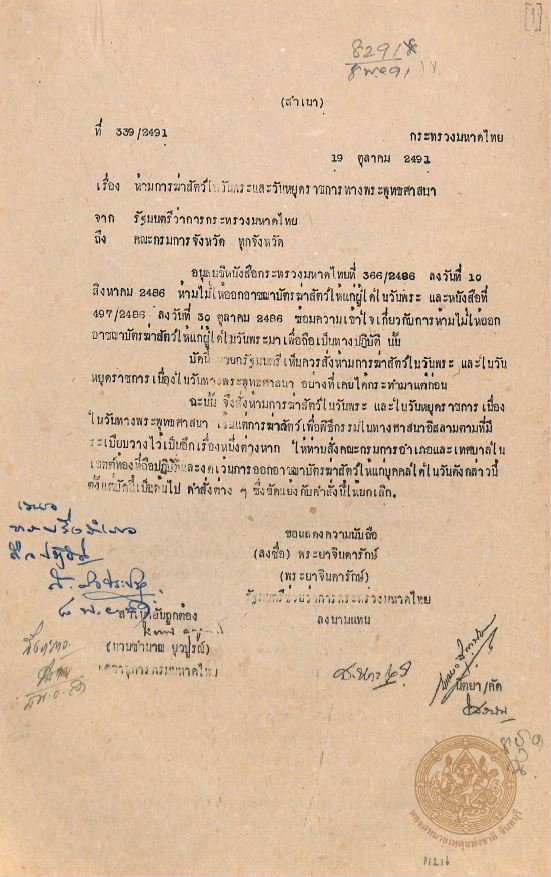 [1]
8291
(สำเนา)
ที่ 339/2491 กระทรวงมหาดไทย
19 ตุลาคม 2491
เรื่อง ห้ามการฆ่าสัตว์ในวันพระและวันหยุดราชการทางพระพุทธศาสนา
จาก รัฐมนตรีว่าการกระทรวงมหาดไทย
ถึง คณะกรมการจังหวัด ทุกจังหวัด
อนุสนธิหนังสือกระทรวงมหาดไทยที่ 366/2486 ลงวันที่ 10
สิงหาคม 2486 ห้ามไม่ให้ออกอาชญาบัตรฆ่าสัตว์ให้แก่ผู้ใดในวันพระ และหนังสือที่
497/2486 ลงวันที่ 30 ตุลาคม 2486 ซ้อมความเข้าใจเกี่ยวกับการห้ามไม่ให้ออก
อาชญาบัตรฆ่าสัตว์ให้แก่ผู้ใดในวันพระมาเพื่อถือเป็นทางปฏิบัติ นั้น
บัดนี้ คณะรัฐมนตรีเห็นควรสั่งห้ามการฆ่าสัตว์ในวันพระ และในวัน
หยุดราชการเนื่องในวันทางพระพุทธศาสนา อย่างที่เคยได้กระทำมาแต่ก่อน
ฉะนั้น จึงสั่งห้ามการฆ่าสัตว์ในวันพระ และในวันหยุดราชการ เนื่อง
ในวันทางพระพุทธศาสนา เว้นแต่การฆ่าสัตว์เพื่อพิธีกรรมในทางศาสนาอิสลามตามที่มี
ระเบียบวางไว้เป็นอีกเรื่องหนึ่งต่างหาก ให้ท่านสั่งคณะกรมการอำเภอและเทศบาลใน
เขตต์ท้องที่ถือปฏิบัติและงดเว้นการออกอาชญาบัตรฆ่าสัตว์ให้แก่บุคคลใดในวันดังกล่าวนี้
ตั้งแต่บัดนี้เป็นต้นไป คำสั่งต่าง ๆ ซึ่งขัดแย้งกับคำสั่งนี้ให้ยกเลิก.
ขอแสดงความนับถือ
(ลงชื่อ) พระยาจินดารักษ์
(พระยาจินดารักษ์)
รัฐมนตรีช่วยว่าการกระทรวงมหาดไทย
ลงนามแทน
สำเนาอันถูกต้อง
(นายชำนาญ ยุวบูรณ์)
เลขานุการกรมมหาดไทย
นิตยา/คัด
หอจดหมายเหตุแห่งชาติ จันทบุรี